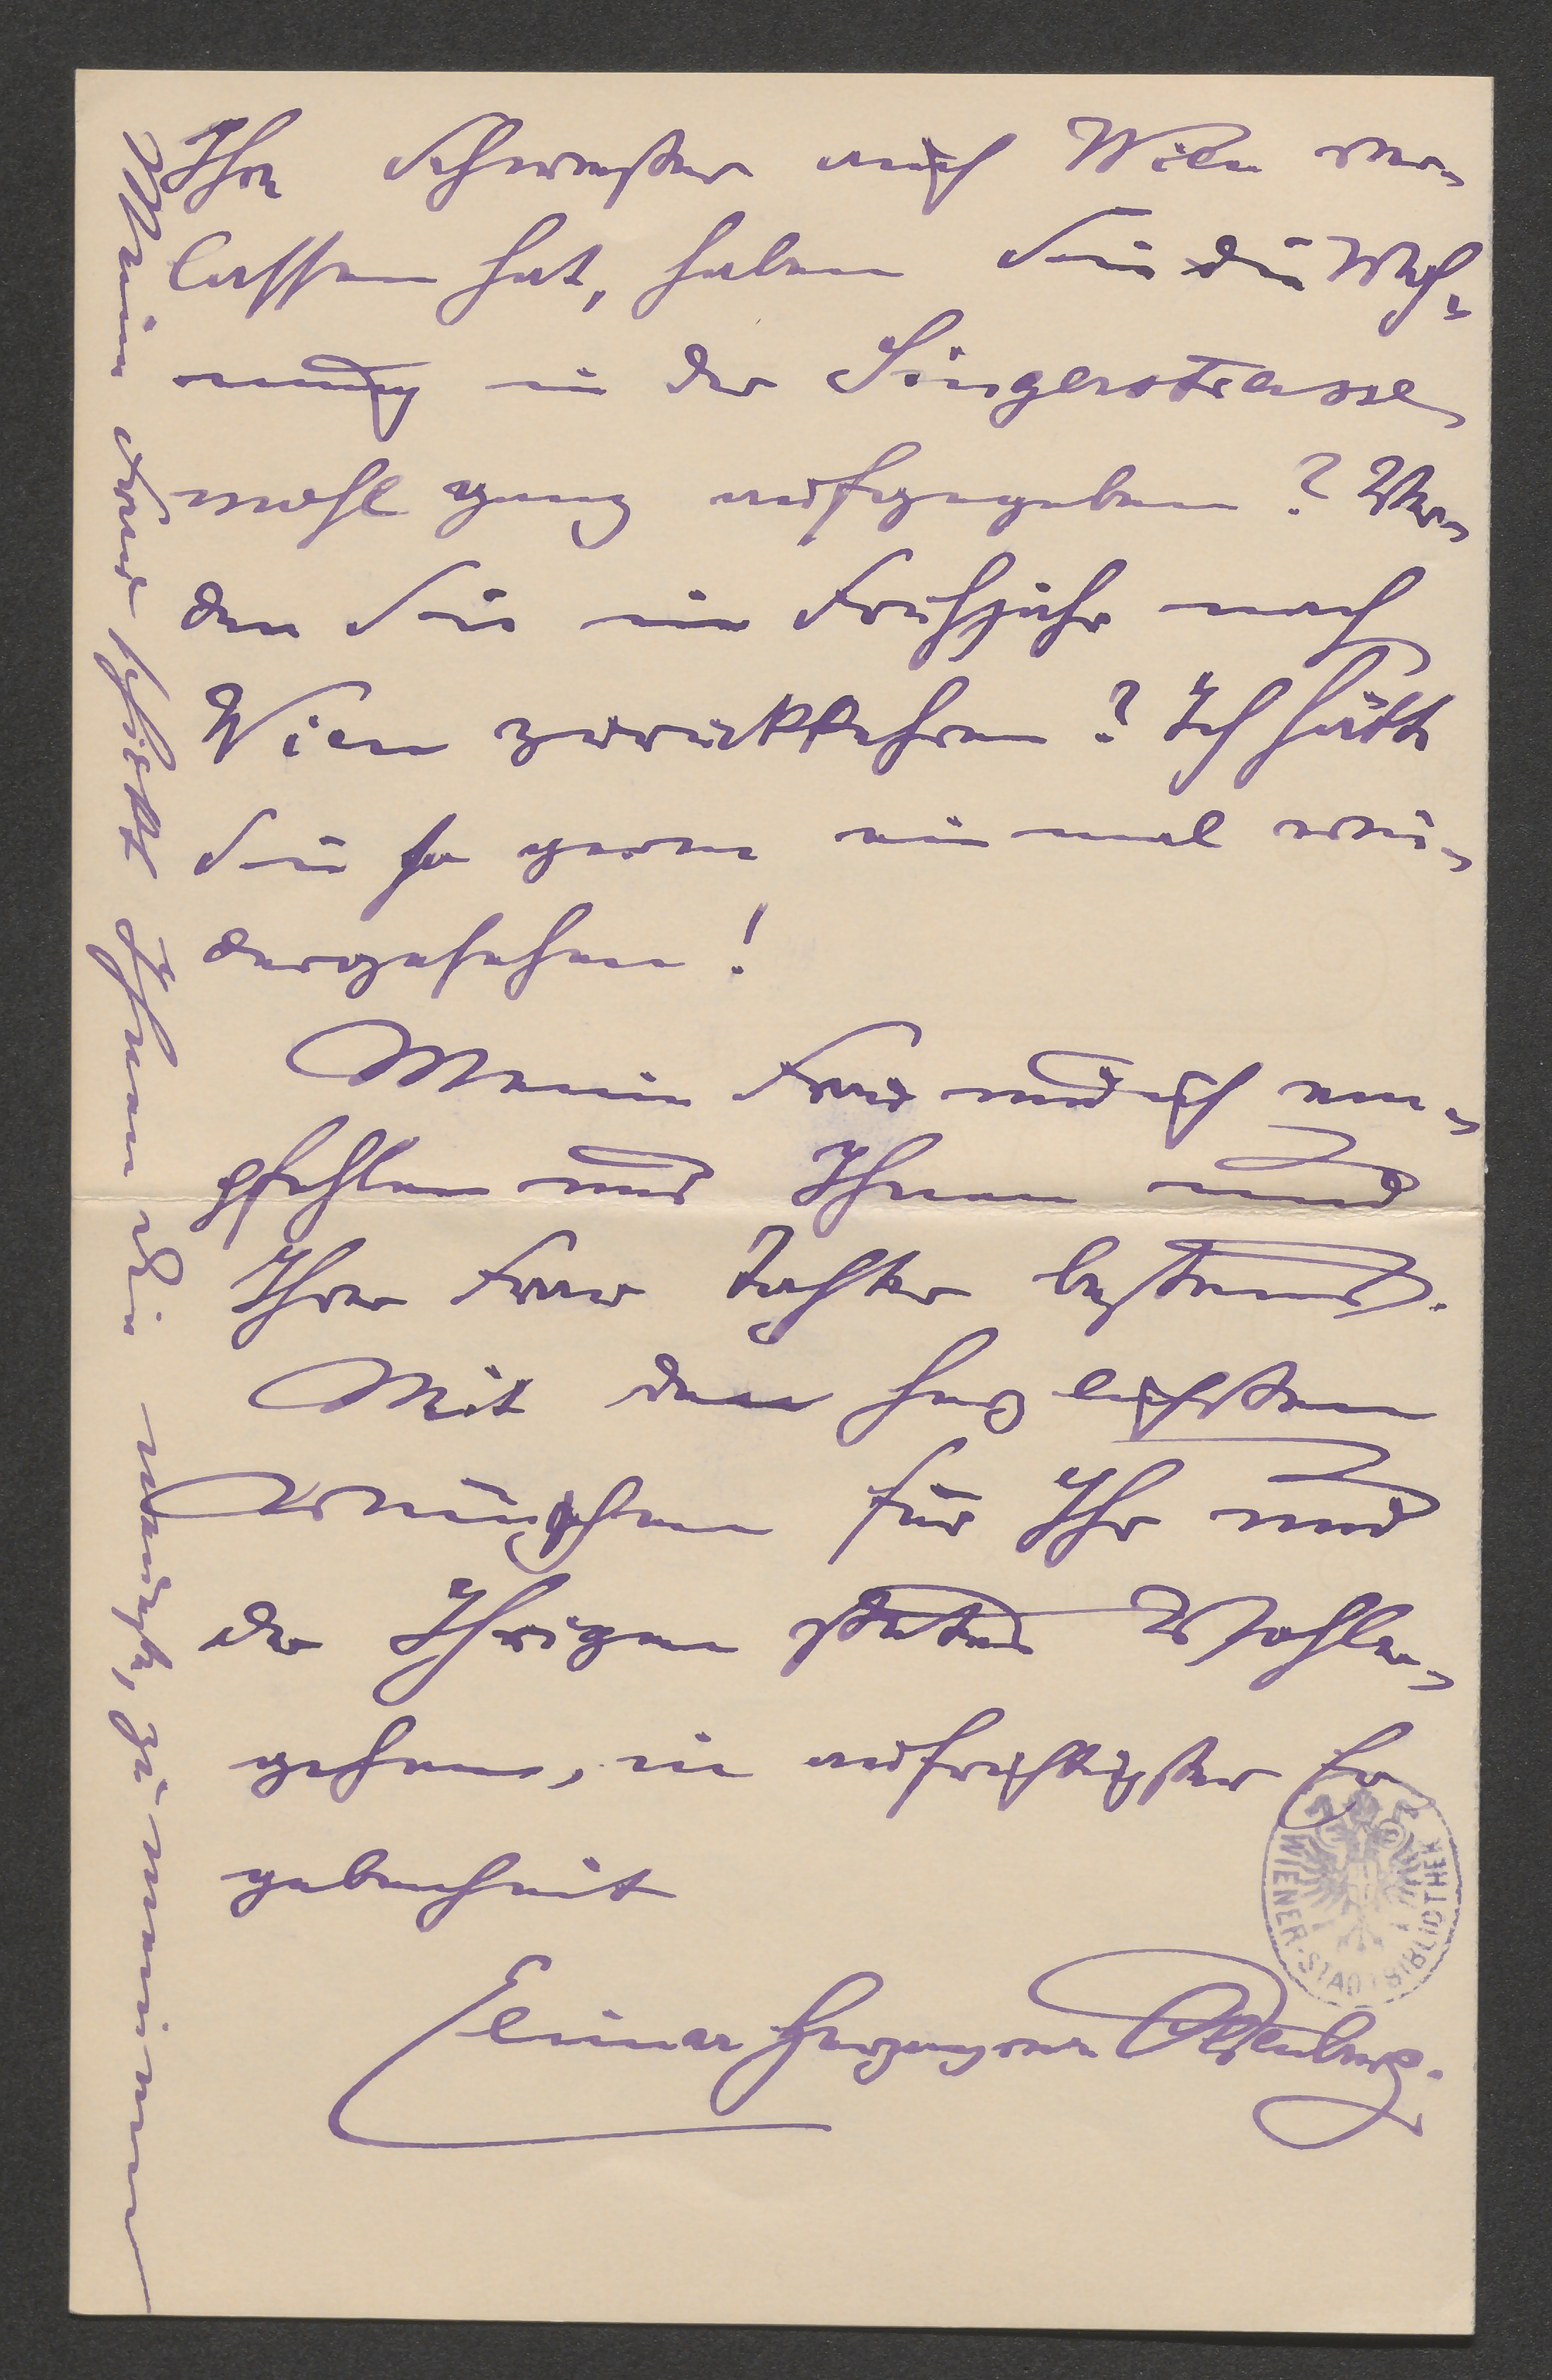 Ihre Schwester auch Wien ver-
lassen hat, haben Sie die Woh-
nung in der Singerstrasse
wohl ganz aufgegeben? Wer-
den Sie im Frühjahr nach
Wien zurückkehren? Ich hätte
Sie so gerne einmal wie-
dergesehen!
Meine Frau und ich em-
pfehlen uns Ihnen und
Ihrer Frau Tochter bestens.
Mit den herzlichsten
Wünschen für Ihr und
der Ihrigen stetes Wohler-
gehen, in aufrichtigster Er
gebenheit
Elimar Herzog von Oldenburg.
Meine Frau schickt Ihnen die
WIENER STADTBIBLIOTHEK